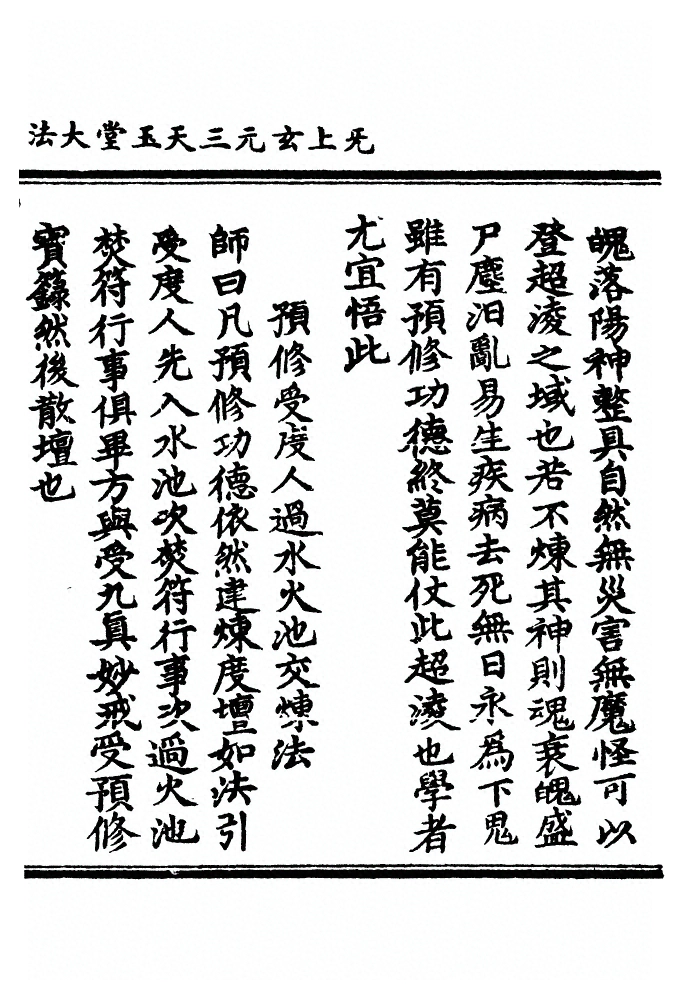 法大堂玉天三元玄上旡
魄落陽神整具自然無災害無魔怪可以
登超淩之域也若不煉其神則魂衰魄盛
尸塵汨亂易生疾病去死無日永為下鬼
雖有預修功德終莫能仗此超淩也學者
尤宜悟此
預修受度人過水火池交煉法
師曰凡預修功德依然建煉度壇如法引
受度人先入水池次焚符行事次過火池
焚符行事俱畢方與受九真妙戒受預修
寶籙然後散壇也